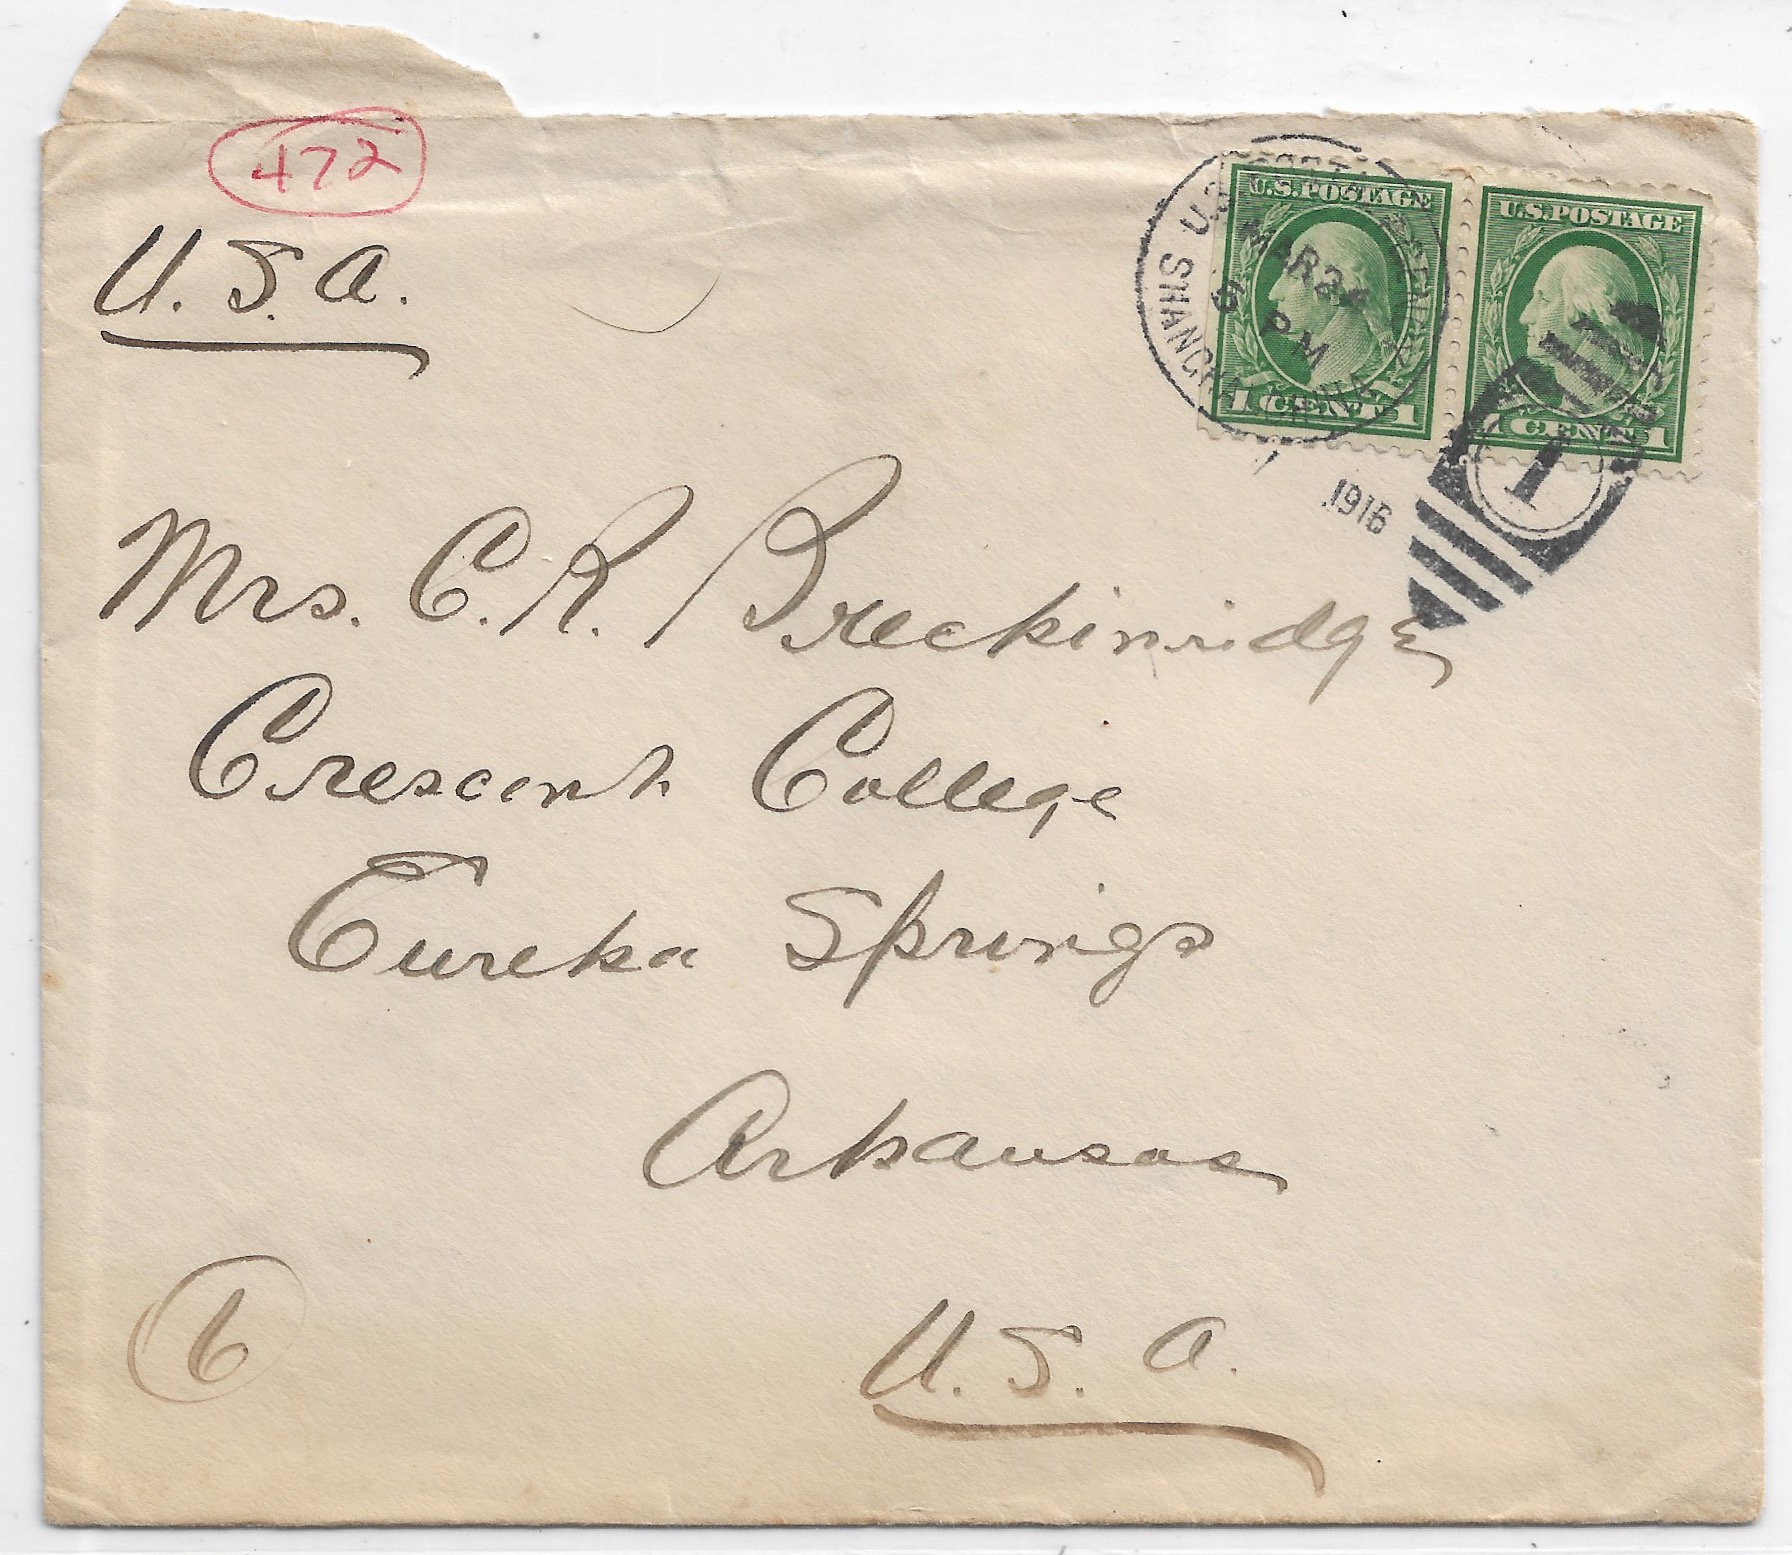 472
U.S.A.
U.S. POSTAL AGENCY
SHANGHAI CHINA
MAR 24
5 PM
1916
1
U.S. POSTAGE
1 CENT 1
U.S. POSTAGE
1 CENT 1
Mrs. C. R. Breckinridge
Crescent College
Eureka Springs
Arkansas
U.S.A.
6